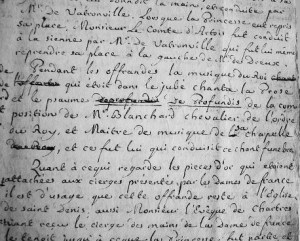 la main, et conduite par
Mr. de Vatronville. Lorsque la Princesse eut repris
sa place, Monsieur Le Comte d'Artois fut conduit
à la sienne par Mr. de Vatronville qui fut lui même
reprendre sa place à la gauche de M. du Dreux.
Pendant les offrandes la musique du Roi
qui étoit dans le jubé chanta la Prose
et le pseaume De profundis de la com
position de Mr. Blanchard chevalier de l'ordre
du Roy, et Maitre de musique de la chapelle
et ce fut lui qui conduisit ce chant funebre
Quant à ce qui regarde les pieces d'or qui etoient
attachées aux cierges presentés par les dames de france
il est d'usage que cette offrande reste à l'Eglise
de saint Denis, aussi Monseigneur l'Evêque de Chartres
ayant reçu le cierge des mains de la Dame de france